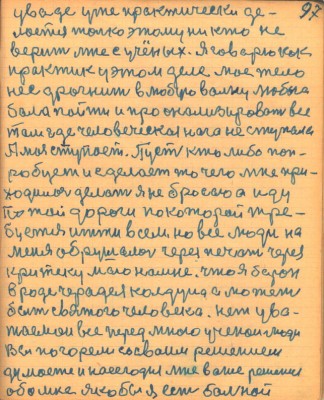 97
у воде уже практически де-
лается только этому ни кто не
верит мне с учёных. Я говорю как
практик у этом деле мое тело
не дрогнит в любую волну любога
бала пойти и проанализировать все
там где человеческая нага не ступала
А моя ступает. Пусть кто либо поп-
робует и сделает то чего мне при-
ходится делать я не бросаю а иду
По той дороги по которой тре-
буется итти всем но все люди на
меня обрушались через печать через
критеку мало на мне. что я
вроде чарадея колдуна а можеть
быть святого человека. нет ува-
жаемои все перед мною ученои люди
Вы по горем со своим решением
думаете и насегодня мне ваше решения
обо мне. якобы я есть больной